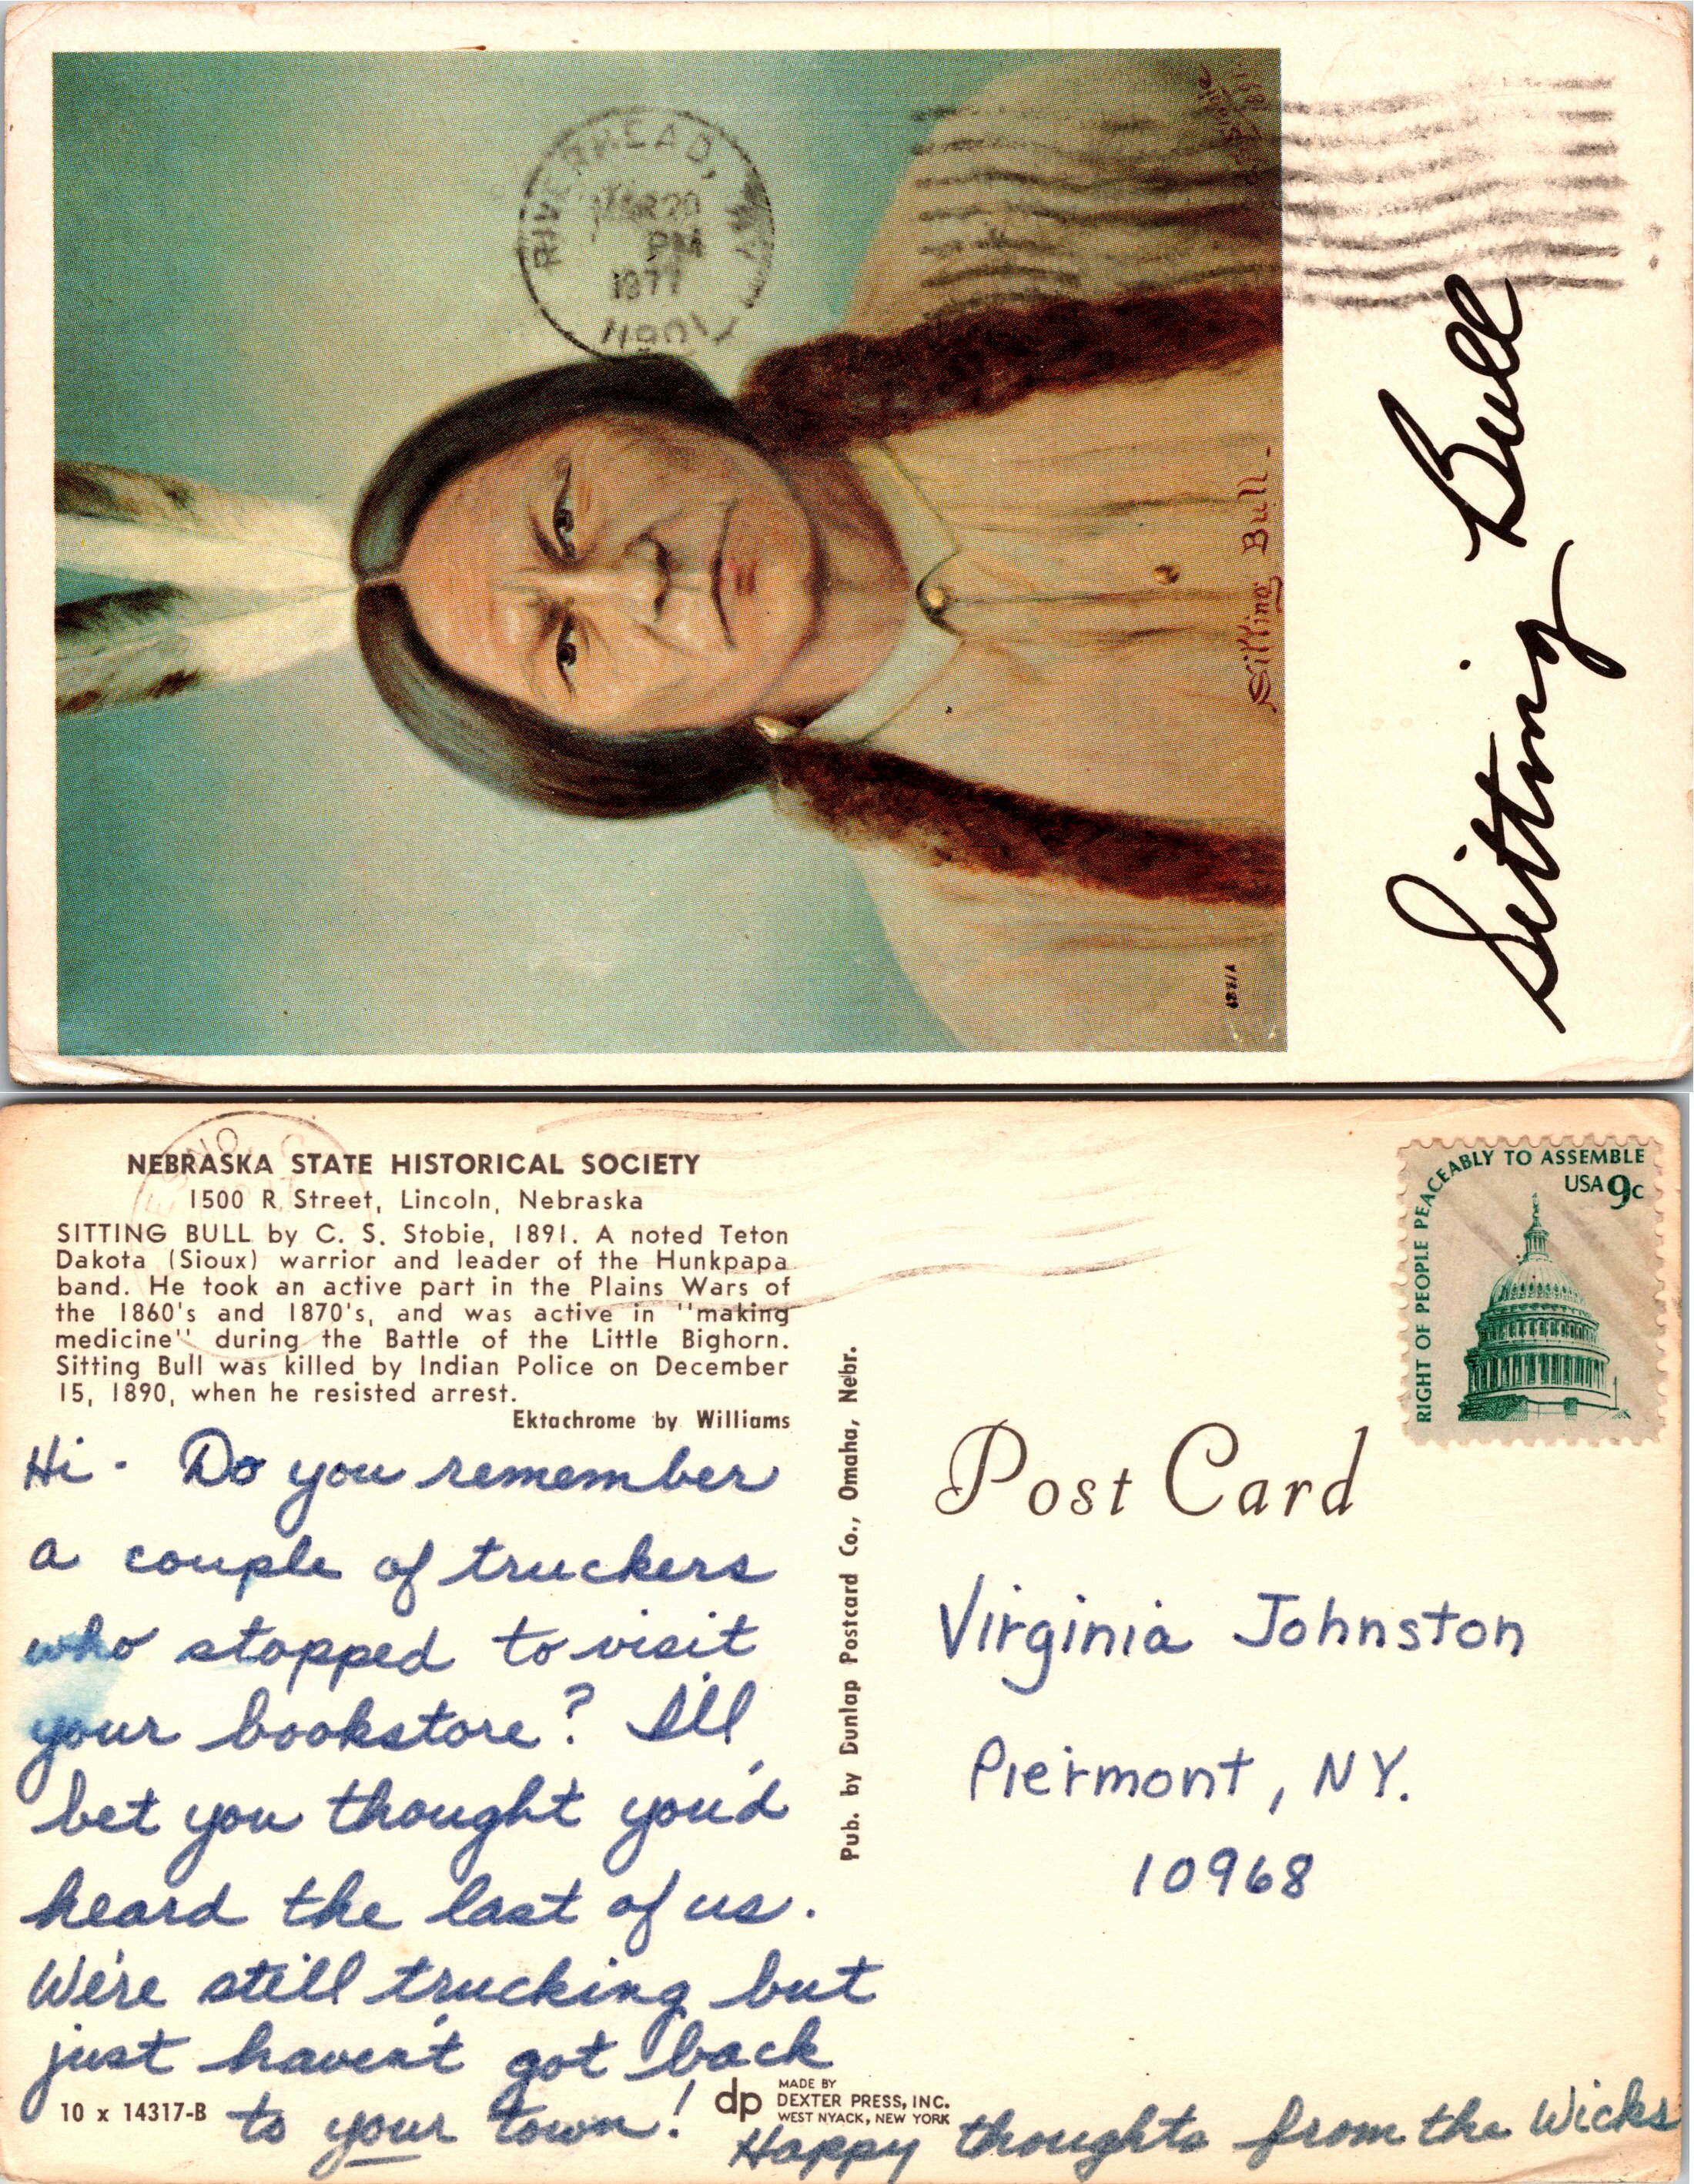 RIVERHEAD, NY
MAR 20
PM
1977
11901
C. S. Stobie
1891.
Sitting Bull.
Sitting Bull
NEBRASKA STATE HISTORICAL SOCIETY
1500 R Street, Lincoln, Nebraska
SITTING BULL by C. S. Stobie, 1891. A noted Teton
Dakota (Sioux) warrior and leader of the Hunkpapa
band. He took an active part in the Plains Wars of
the 1860's and 1870's, and was active in "making
medicine" during the Battle of the Little Bighorn.
Sitting Bull was killed by Indian Police on December
15, 1890, when he resisted arrest.
Ektachrome by Williams
Hi - Do you remember
a couple of truckers
who stopped to visit
your bookstore? I'll
bet you thought you'd
heard the last of us.
We're still trucking but
just haven't got back
to your town!
Happy thoughts from the Wicks
10 x 14317-B
dp
MADE BY
DEXTER PRESS, INC.
WEST NYACK, NEW YORK
Pub. by Dunlap Postcard Co., Omaha, Nebr.
RIGHT OF PEOPLE PEACEABLY TO ASSEMBLE
USA 9c
Post Card
Virginia Johnston
Piermont, NY.
10968